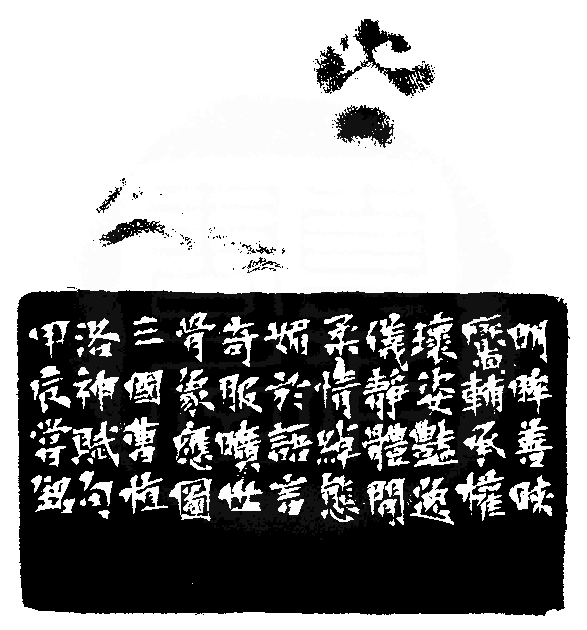 明眸善睞
靨輔承權
瓌姿豔逸
儀靜體閒
柔情綽態
媚於語言
奇服曠世
骨象應圖
三國曹植
洛神賦句
甲辰